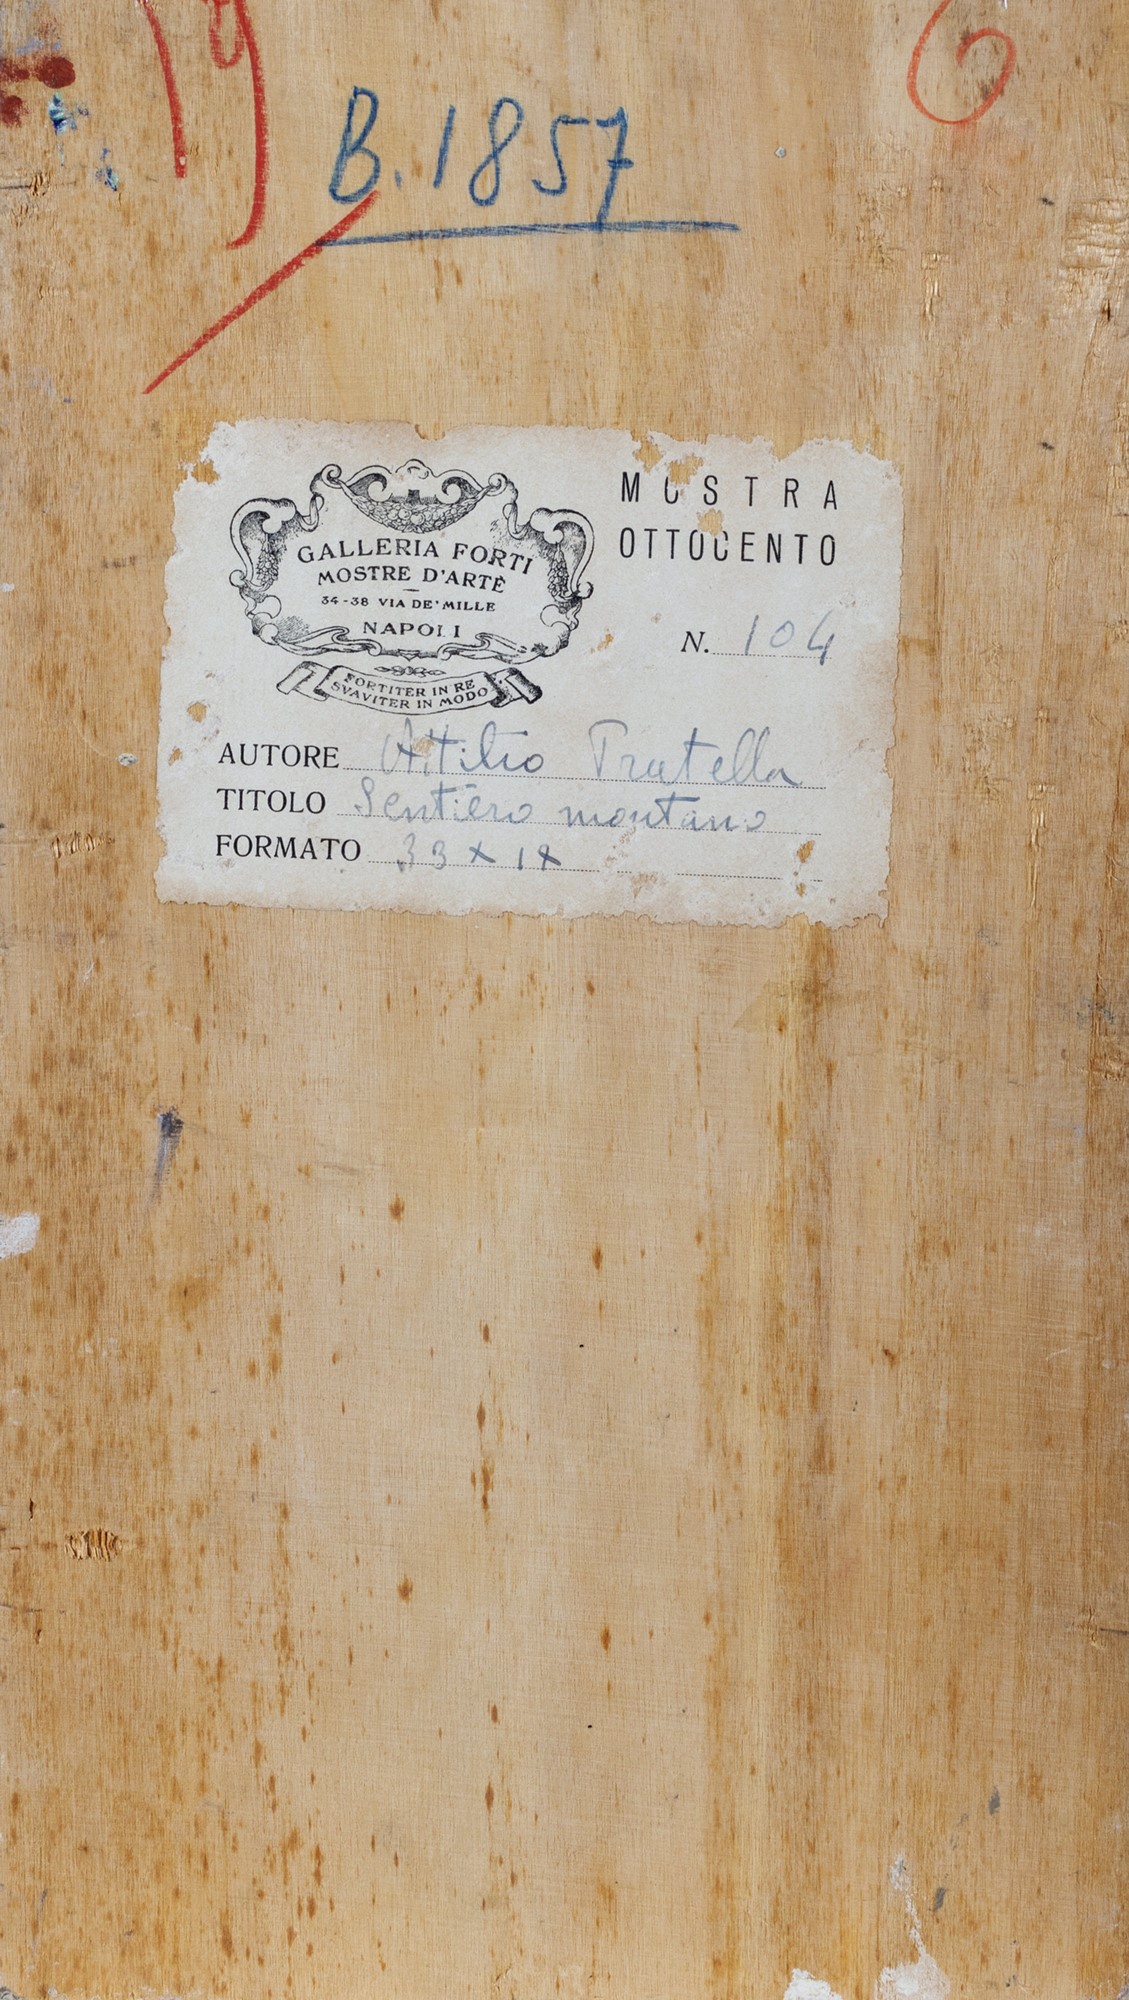 19
6
B. 1857
GALLERIA FORTI
MOSTRE D'ARTE
34-38 VIA DE' MILLE
NAPOLI
FORTITER IN RE
SVAVITER IN MODO
MOSTRA
OTTOCENTO
N. 104
AUTORE Attilio Pratella
TITOLO Sentiero montano
FORMATO 33 x 18